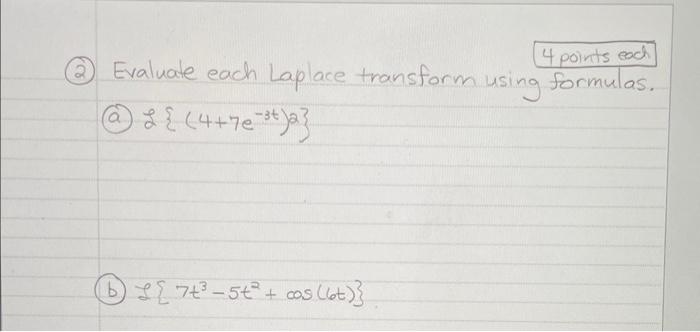 4 points each
② Evaluate each Laplace transform using formulas.
ⓐ ℒ{(4+7e⁻³ᵗ)²}
ⓑ ℒ{7t³-5t²+cos(6t)}